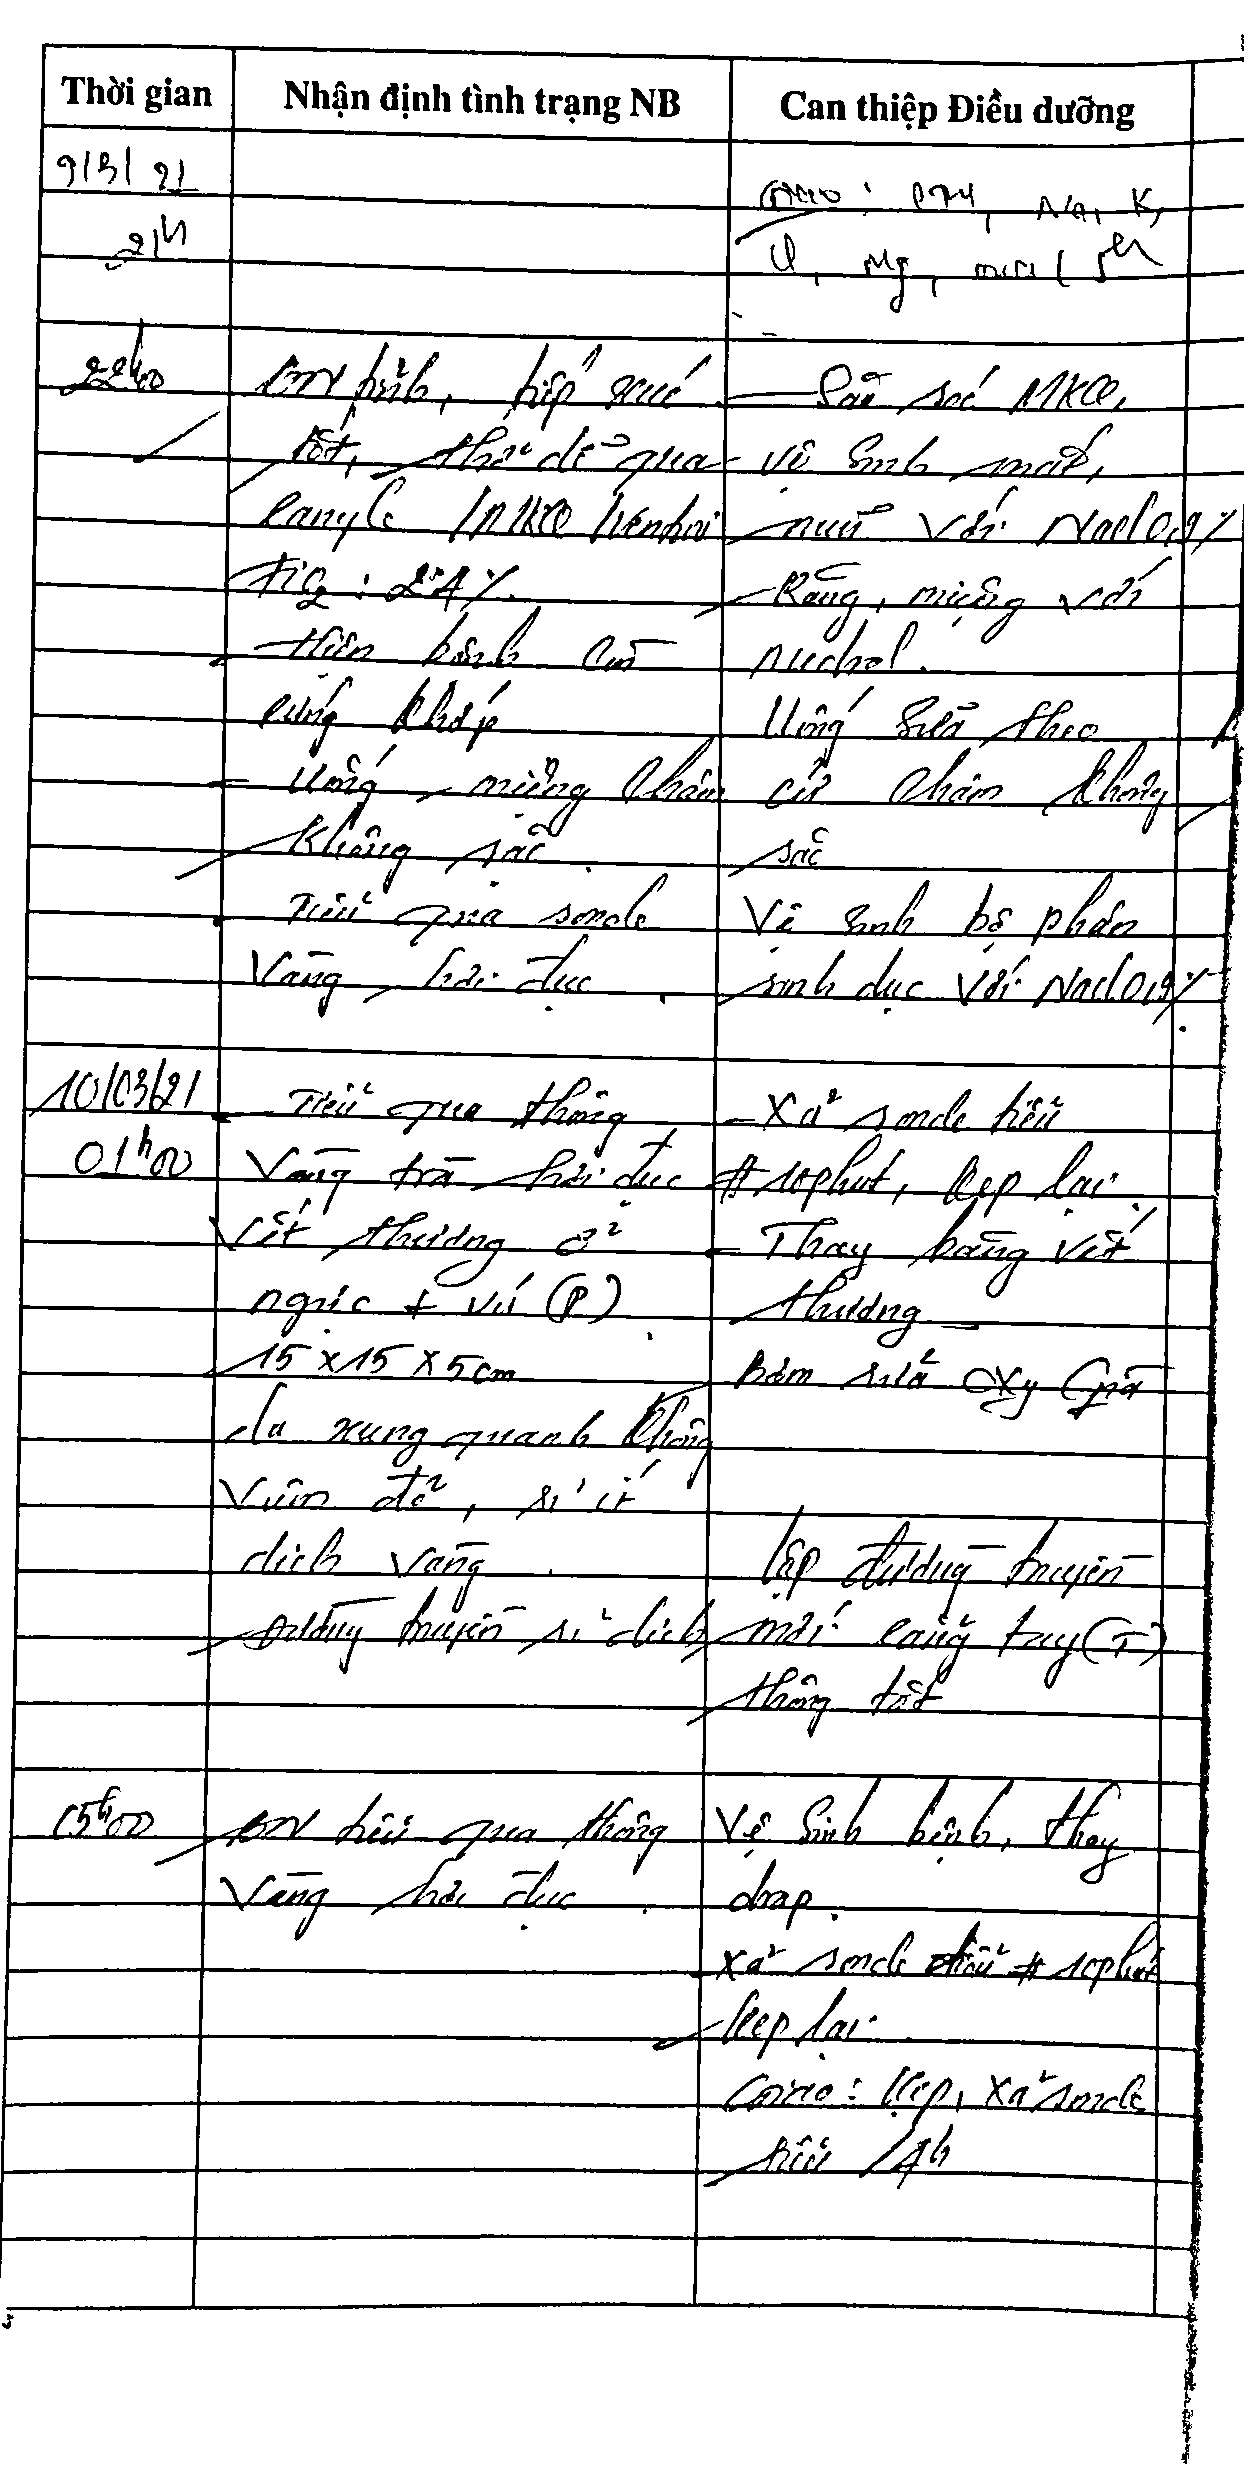 Thời gian
Nhận định tình trạng NB
Can thiệp Điều dưỡng
9/3/21
21h
Giao : CTM, Na, K,
Cl, Mg, 5h
22h00
BN tỉnh, tiếp xúc
tốt, thở dễ qua
canyle MKQ
FiO2 : 24%.
Hiện bệnh còn
cứng khớp
- Uống miệng chậm
không sặc.
Tiểu qua sonde
vàng hơi đục.
- Săn sóc MKQ,
vệ sinh mắt,
mũi với Nacl 0,9%
- Răng, miệng với
Uống sữa theo
cử chậm không
sặc
Vệ sinh bộ phận
sinh dục với Nacl 0,9%.
10/03/21
01h00
- Tiểu qua thông
vàng trà hơi đục
Vết thương ở
ngực + vú (P)
15 x 15 x 5cm
da xung quanh không
viêm đỏ, rỉ ít
dịch vàng.
Đường truyền rỉ dịch
- Xả sonde tiểu
# 10phút, kẹp lại.
- Thay băng vết
thương
Bơm rửa oxy già
lập đường truyền
mới cẳng tay (T)
thông tốt
05h00
BN tiểu qua thông
vàng hơi đục.
Vệ sinh bệnh, thay
drap.
Xả sonde tiểu # 10phút
kẹp lại.
Giao : kẹp, xả sonde
tiểu /4h